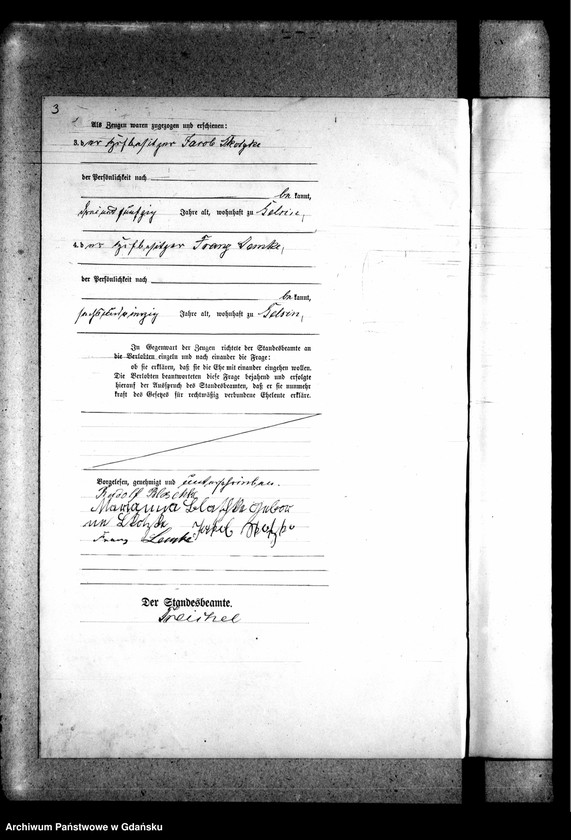 3
Als Zeugen waren zugezogen und erschienen:
3. der Hofbesitzer Jacob Skotzke
der Persönlichkeit nach
bekannt,
dreiundfünfzig Jahre alt, wohnhaft zu
4. der Hofbesitzer Franz Lemke,
der Persönlichkeit nach
bekannt,
Jahre alt, wohnhaft zu
In Gegenwart der Zeugen richtete der Standesbeamte an
die Verlobten einzeln und nach einander die Frage:
ob sie erklären, daß sie die Ehe mit einander eingehen wollen.
Die Verlobten beantworteten diese Frage bejahend und erfolgte
hierauf der Ausspruch des Standesbeamten, daß er sie nunmehr
kraft des Gesetzes für rechtmäßig verbundene Eheleute erkläre.
Vorgelesen, genehmigt und unterschrieben.
Rudolf Blaschke
Marianna Blaschke gebor
ne Skotzke Jakob
Franz Lemke
Der Standesbeamte.
Treichel
Archiwum Państwowe w Gdańsku